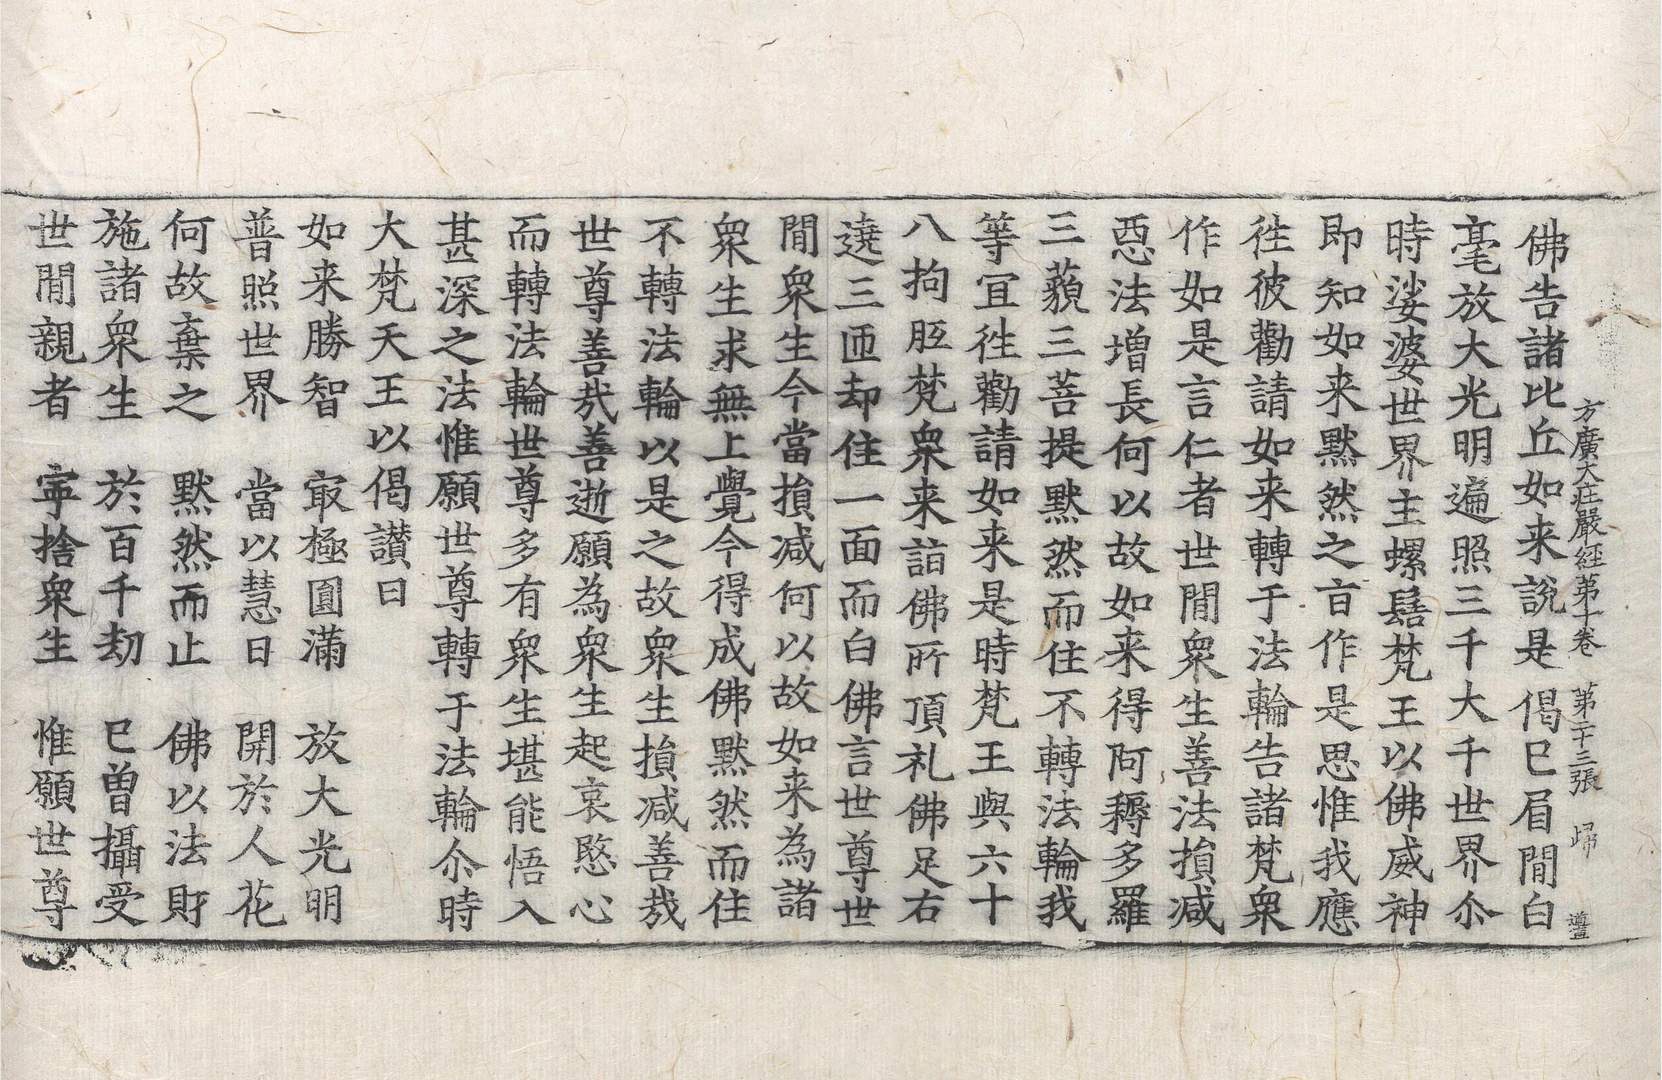 方廣大莊嚴經第十卷 第二十三張 歸 遵
佛告諸比丘如来說是偈已眉閒白
毫放大光明遍照三千大千世界尒
時娑婆世界主螺髻梵王以佛威神
即知如来默然之旨作是思惟我應
徃彼勸請如来轉于法輪告諸梵衆
作如是言仁者世閒衆生善法損减
惡法增長何以故如来得阿耨多羅
三藐三菩提默然而住不轉法輪我
等冝徃勸請如来是時梵王與六十
八拘胝梵衆来詣佛所頂礼佛足右
遶三匝却住一面而白佛言世尊世
閒衆生今當損减何以故如来為諸
衆生求無上覺今得成佛默然而住
不轉法輪以是之故衆生損减善哉
世尊善哉善逝願為衆生起哀愍心
而轉法輪世尊多有衆生堪能悟入
甚深之法惟願世尊轉于法輪尒時
大梵天王以偈讃曰
如来勝智 㝡極圓滿 放大光明
普照世界 當以慧日 開於人花
何故棄之 默然而止 佛以法財
施諸衆生 於百千劫 已曾攝受
世閒親者 寧捨衆生 惟願世尊